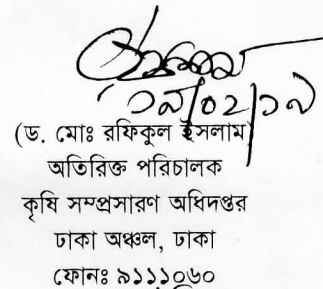 ১৯/০২/১৯
(ড. মোঃ রফিকুল ইসলাম)
অতিরিক্ত পরিচালক
কৃষি সম্প্রসারণ অধিদপ্তর
ঢাকা অঞ্চল, ঢাকা
ফোনঃ ৯১১১০৬০